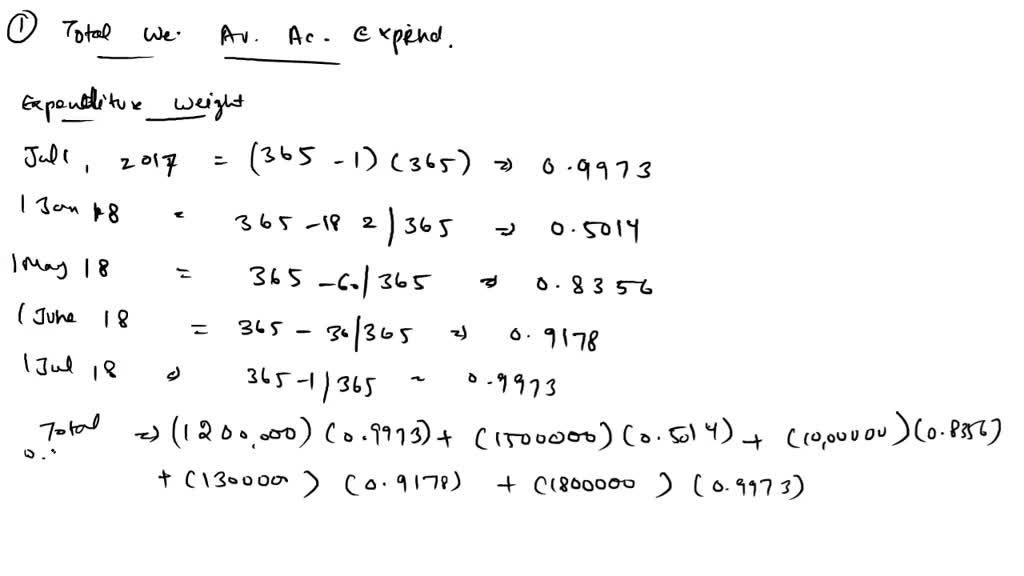 ① Total We. Av. Ac. Expend.
Expenditure Weight
Jul 1, 2017 = (365 - 1) (365) ⇒ 0.9973
1 Jan 18 = 365 - 182 | 365 ⇒ 0.5014
1 May 18 = 365 - 60 | 365 ⇒ 0.8356
1 June 18 = 365 - 30 | 365 ⇒ 0.9178
1 Jul 18 ⇒ 365 - 1 | 365 ~ 0.9973
Total ⇒ (1200,000) (0.9973) + (1500000) (0.5014) + (10,00000) (0.8356)
+ (130000) (0.9178) + (1800000) (0.9973)